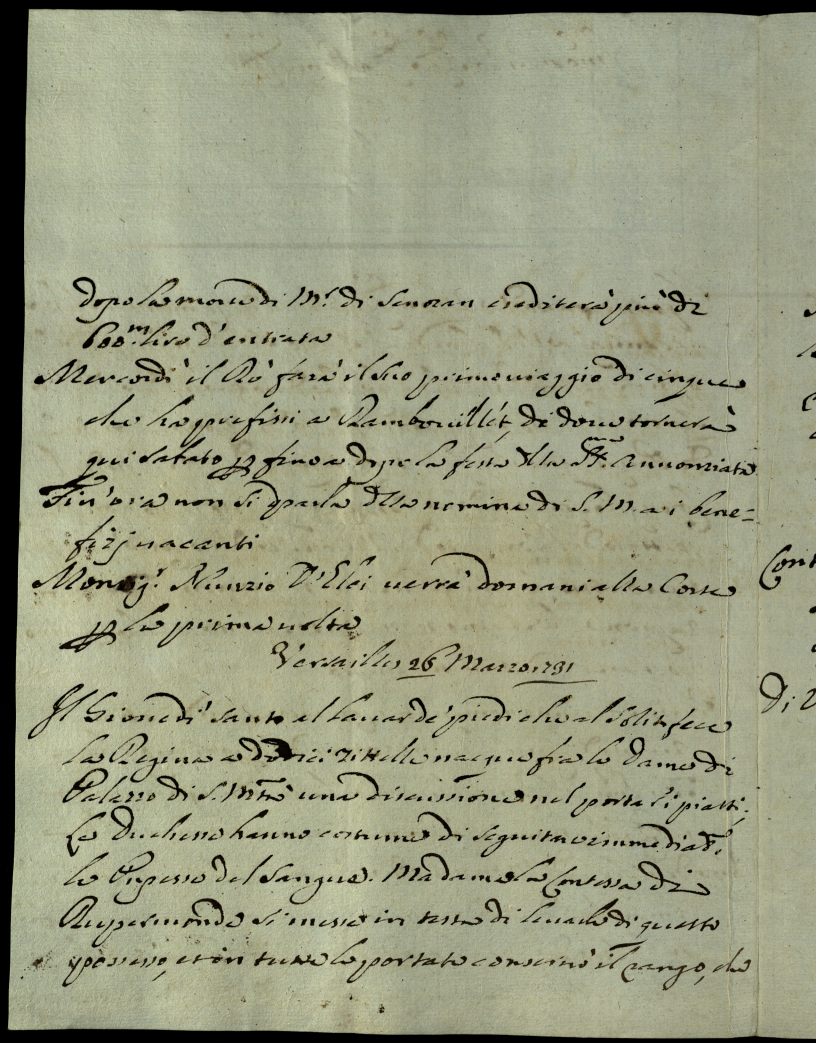 dopo la morte di M.r di Senozan erediterà più di
600.m lire d'entrata
Mercordi il Rè farà il suo primo viaggio di cinque
che ha prefissi a Rambouillét, di dove tornerà
qui sabato p fino a dopo la festa dlla SS.ma Annonziata
Fin' ora non si parla dlla nomina di S. M. a i bene=
fizj vacanti
Monsig.r Nunzio D'Elci verrà domani alla Corte
p la prima volta
Versailles 26 Marzo 1731
Il Giovedì santo al lavar de' piedi che al solito fece
la Regina a dodici zittelle nacque fra le Dame di
Palazzo di S. Mtà una discussione nel portar i piatti;
Le Duchesse hanno costume di seguitare immediat.e
le Pnpesse del Sangue. Madama la Contessa di
Rupermonde si messe in testa di levarle di questo
possesso, et in tutte le portate conservò il rango, che
Cont
Di